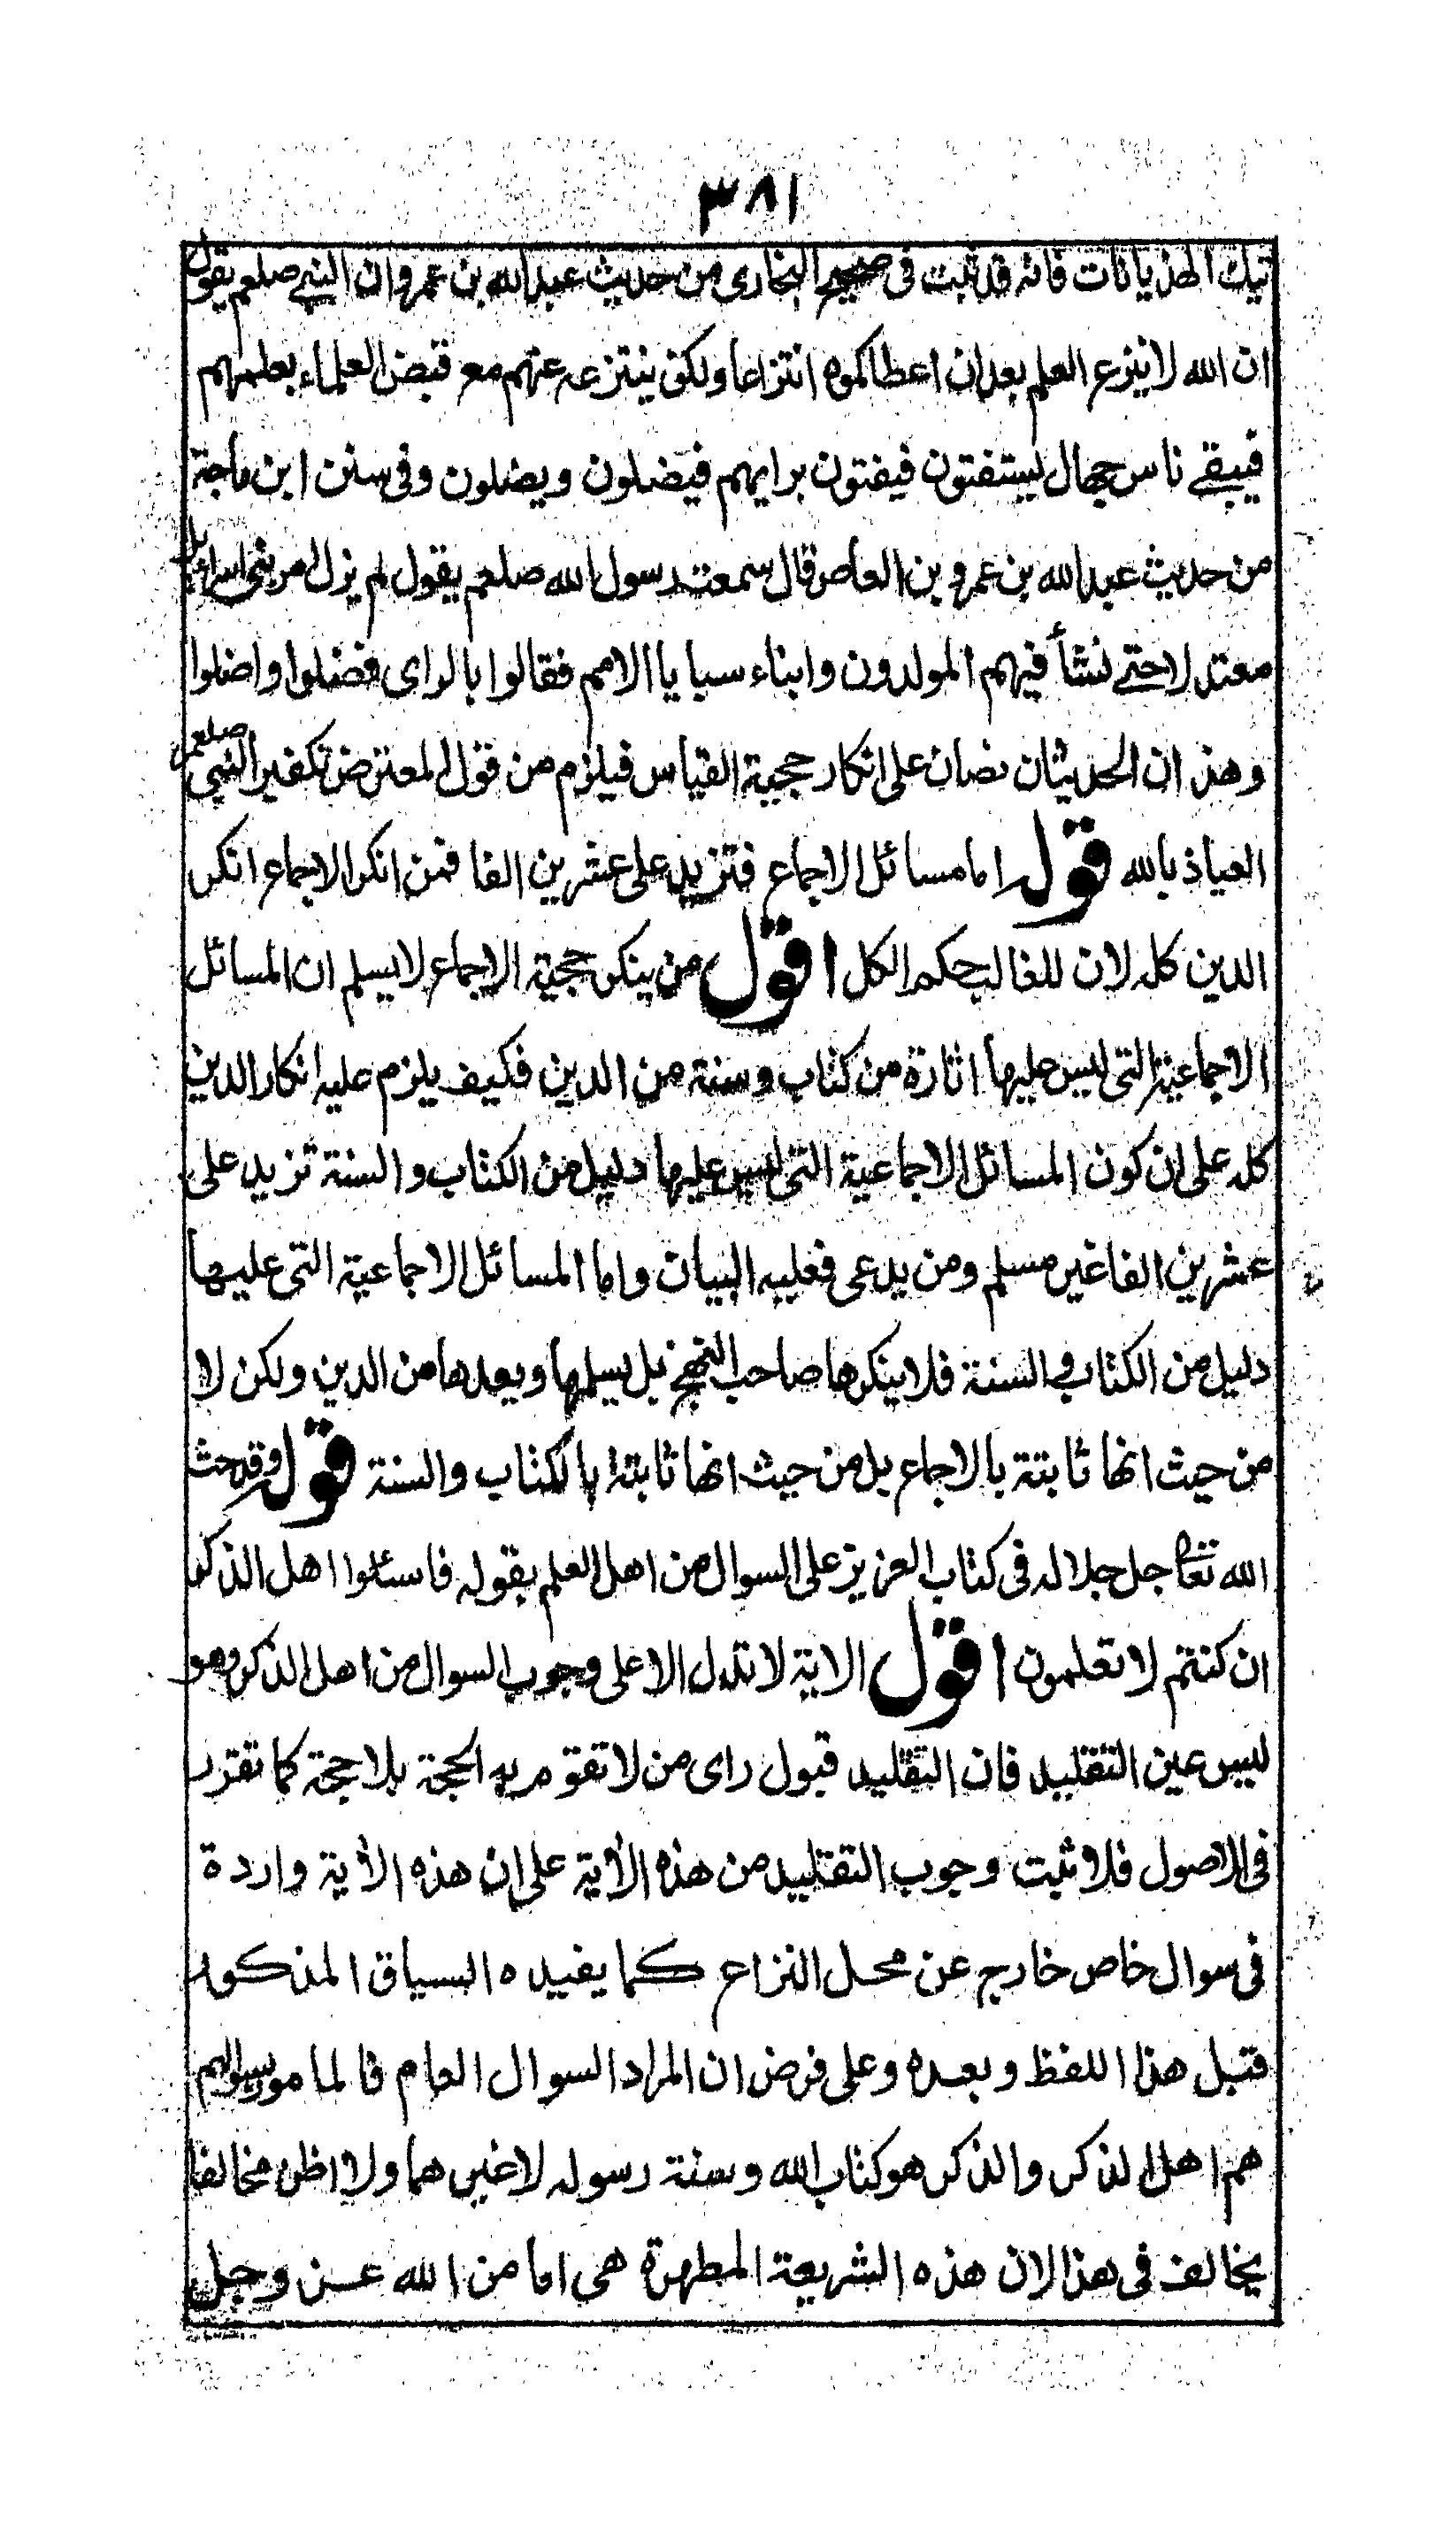 ٣٨١
تيك الهذيانات فانه قد ثبت فى صحيح البخارى من حديث عبد الله بن عمرو ان النبي صلعم يقول
ان الله لا ينزع العلم بعد ان اعطاكموه انتزاعا ولكن ينتزعه عنهم مع قبض العلماء بعلمهم
فيبقے ناس جهال يستفتون فيفتون برايهم فيضلون ويضلون وفى سنن ابن ماجة
من حديث عبد الله بن عمرو بن العاص قال سمعت رسول الله صلعم يقول لم يزل امر بنى اسرائيل
معتدلا حتے نشأ فيهم المولدون وابناء سبايا الامم فقالوا بالراى فضلوا واضلوا
وهذان الحديثان نصان على انكار حجية القياس فيلزم من قول المعترض تكفير النبي صلعم
العياذ بالله قوله اما مسائل الاجماع فتزيد على عشرين الفا فمن انكر الاجماع انكر
الدين كله لان للغالب حكم الكل اقول من ينكر حجية الاجماع لا يسلم ان المسائل
الاجماعية التى ليس عليها اثارة من كتاب وسنة من الدين فكيف يلزم عليه انكار الدين
كله على ان كون المسائل الاجماعية التى ليس عليها دليل من الكتاب والسنة تزيد على
عشرين الفا غير مسلم ومن يدعى فعليه البيان واما المسائل الاجماعية التى عليها
دليل من الكتاب والسنة فلا ينكرها صاحب النهج بل يسلمها ويعدها من الدين ولكن لا
من حيث انها ثابتة بالاجماع بل من حيث انها ثابتة بالكتاب والسنة قوله وقد حث
الله تعالى جل جلاله فى كتاب العزيز على السوال من اهل العلم بقوله فاسئلوا اهل الذكر
ان كنتم لا تعلمون اقول الاية لا تدل الا على وجوب السوال من اهل الذكر وهو
ليس عين التقليد فان التقليد قبول راى من لا تقوم به الحجة بلا حجة كما تقرر
فى الاصول فلا ثبت وجوب التقليد من هذه الأية على ان هذه الأية واردة
فى سوال خاص خارج عن محل النزاع كما يفيده السياق المذكور
قبل هذا اللفظ وبعده وعلى فرض ان المراد السوال العام فالمامور بسوالهم
هم اهل الذكر والذكر هو كتاب الله وسنة رسوله لا غيرهما ولا اظن مخالفا
يخالف فى هذا لان هذه الشريعة المطهرة هى اما من الله عز وجل